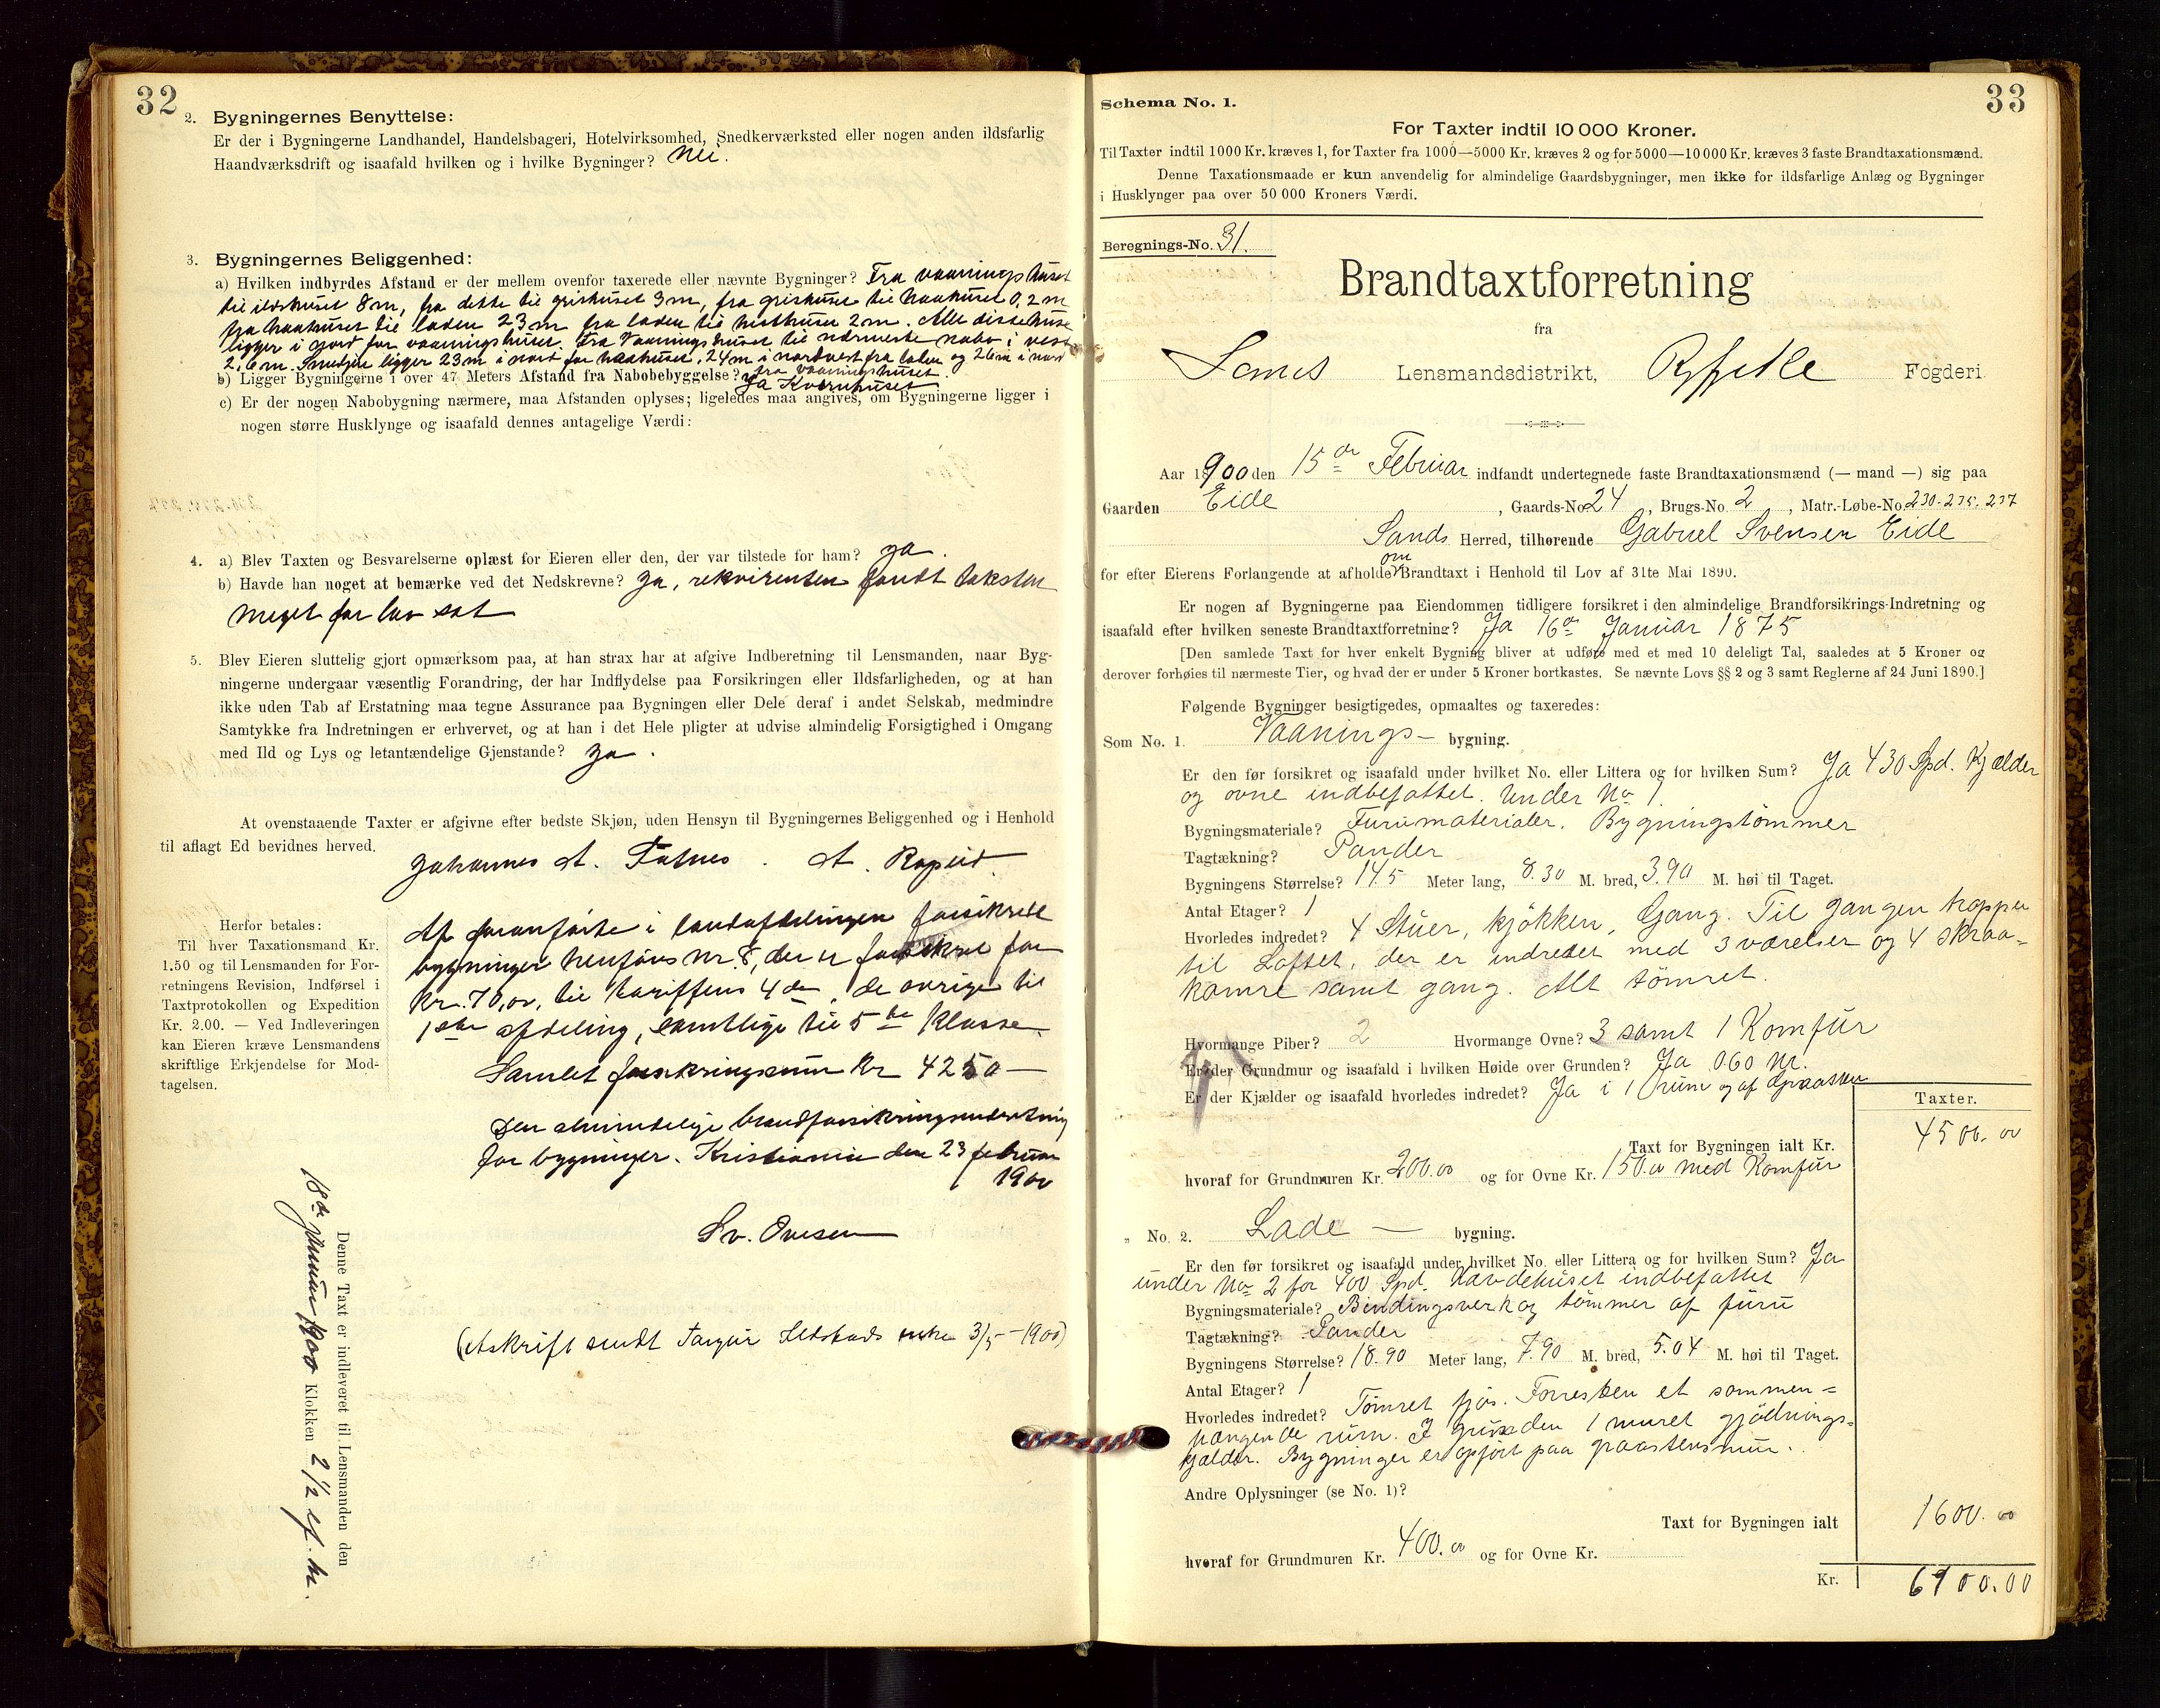 32
2. Bygningernes Benyttelse:
Er der i Bygningerne Landhandel, Handelsbageri, Hotelvirksomhed, Snedkerværksted eller nogen anden ildsfarlig
Haandværksdrift og isaafald hvilken og i hvilke Bygninger? Nei.
3. Bygningernes Beliggenhed:
a) Hvilken indbyrdes Afstand er der mellem ovenfor taxerede eller nævnte Bygninger? Fra vaaningshuset
til ildhuset 8 m, fra dette til grishuset 3 m, fra grishuset til haahuset 0,2 m
fra haahuset til laden 23 m fra laden til hesthuset 2 m. Alle disse huse
ligger i nord for vaaningshuset. Fra Vaaningshuset til nærmeste nabo i vest
2,6 m. Smedjen ligger 23 m i nord for haahuset, 24 m i nordvest fra laden og 26 m i nord
fra vaaningshuset.
b) Ligger Bygningerne i over 47 Meters Afstand fra Nabobebyggelse? Ja Kvernhuset
c) Er der nogen Nabobygning nærmere, maa Afstanden oplyses; ligeledes maa angives, om Bygningerne ligger i
nogen større Husklynge og isaafald dennes antagelige Værdi:
4. a) Blev Taxten og Besvarelserne oplæst for Eieren eller den, der var tilstede for ham? Ja.
b) Havde han noget at bemærke ved det Nedskrevne? Ja, rekvirenten fandt taksten
meget for lav sat
5. Blev Eieren sluttelig gjort opmærksom paa, at han strax har at afgive Indberetning til Lensmanden, naar Byg-
ningerne undergaar væsentlig Forandring, der har Indflydelse paa Forsikringen eller Ildsfarligheden, og at han
ikke uden Tab af Erstatning maa tegne Assurance paa Bygningen eller Dele deraf i andet Selskab, medmindre
Samtykke fra Indretningen er erhvervet, og at han i det Hele pligter at udvise almindelig Forsigtighed i Omgang
med Ild og Lys og letantændelige Gjenstande? Ja.
At ovenstaaende Taxter er afgivne efter bedste Skjøn, uden Hensyn til Bygningernes Beliggenhed og i Henhold
til aflagt Ed bevidnes herved.
Johannes A. A.
Herfor betales:
Til hver Taxationsmand Kr.
1.50 og til Lensmanden for For-
retningens Revision, Indførsel i
Taxtprotokollen og Expedition
Kr. 2.00. — Ved Indleveringen
kan Eieren kræve Lensmandens
skriftlige Erkjendelse for Mod-
tagelsen.
Af foranførte i landafdelingen forsikrede
bygninger henføres nr. 8, der er forsikret for
Kr. 70,00, til tariffens 4de, de øvrige til
1ste afdeling, samtlige til 5te klasse.
Samlet forsikringssum Kr 4250 —
Den almindelige brandforsikringsindretning
for bygninger. Kristiania den 23 februar
1900
Sv. Ovesen
(Afskrift sendt 3/5 – 1900)
Denne Taxt er indleveret til Lensmanden den
18de 1900 Klokken 2 1/2 ef. m.
33
Schema No. 1.
For Taxter indtil 10 000 Kroner.
Til Taxter indtil 1000 Kr. kræves 1, for Taxter fra 1000—5000 Kr. kræves 2 og for 5000—10 000 Kr. kræves 3 faste Brandtaxationsmænd.
Denne Taxationsmaade er kun anvendelig for almindelige Gaardsbygninger, men ikke for ildsfarlige Anlæg og Bygninger
i Husklynger paa over 50 000 Kroners Værdi.
Beregnings-No. 31.
Brandtaxtforretning
fra
Lensmandsdistrikt, Ryfylke Fogderi
Aar 1900 den 15de Februar indfandt undertegnede faste Brandtaxationsmænd (— mand —) sig paa
Gaarden Eide, Gaards-No. 24, Brugs-No. 2, Matr.-Løbe-No. 230. 235. 237
Sands Herred, tilhørende Gabriel Svensen Eide
for efter Eierens Forlangende at afholde om Brandtaxt i Henhold til Lov af 31te Mai 1890.
Er nogen af Bygningerne paa Eiendommen tidligere forsikret i den almindelige Brandforsikrings-Indretning og
isaafald efter hvilken seneste Brandtaxtforretning? Ja 16de Januar 1875
[Den samlede Taxt for hver enkelt Bygning bliver at udføre med et med 10 deleligt Tal, saaledes at 5 Kroner og
derover forhøies til nærmeste Tier, og hvad der er under 5 Kroner bortkastes. Se nævnte Lovs §§ 2 og 3 samt Reglerne af 24 Juni 1890.]
Følgende Bygninger besigtigedes, opmaaltes og taxeredes:
Som No. 1. Vaanings- bygning.
Er den før forsikret og isaafald under hvilket No. eller Littera og for hvilken Sum? Ja 430 Spd. Kjælder
og ovne indbefattet. Under No 1.
Bygningsmateriale? Furumaterialer. Bygningstømmer
Tagtækning? Pander
Bygningens Størrelse? 14.5 Meter lang, 8.30 M. bred, 3.90 M. høi til Taget.
Antal Etager? 1
Hvorledes indredet? 4 Stuer, kjøkken, Gang. Til gangen trapper
til Loftet, der er indredet med 3 værelser og 4 skraa-
kamre samt gang. Alt tømret.
Hvormange Piber? 2 Hvormange Ovne? 3 samt 1 Komfur
Er der Grundmur og isaafald i hvilken Høide over Grunden? Ja 0.60 M.
Er der Kjælder og isaafald hvorledes indredet? Ja i 1 rum og af Graasten
Taxter.
Taxt for Bygningen ialt Kr. 4500.00
hvoraf for Grundmuren Kr. 200.00 og for Ovne Kr. 150.00 med Komfur
„ No. 2. Lade — bygning.
Er den før forsikret og isaafald under hvilket No. eller Littera og for hvilken Sum? Ja
under No 2 for 400 Spd. indbefattet
Bygningsmateriale? Bindingsverk og tømmer af furu
Tagtækning? Pander
Bygningens Størrelse? 18.90 Meter lang, 7.90 M. bred, 5.04 M. høi til Taget.
Antal Etager? 1
Hvorledes indredet? Tømret fjøs. Forresten et sammen-
hængende rum. I grunden 1 muret gjødnings-
kjælder. Bygninger er opført paa graastensmur.
Andre Oplysninger (se No. 1)?
Taxt for Bygningen ialt 1600.00
hvoraf for Grundmuren Kr. 400.00 og for Ovne Kr.
Kr. 6100.00